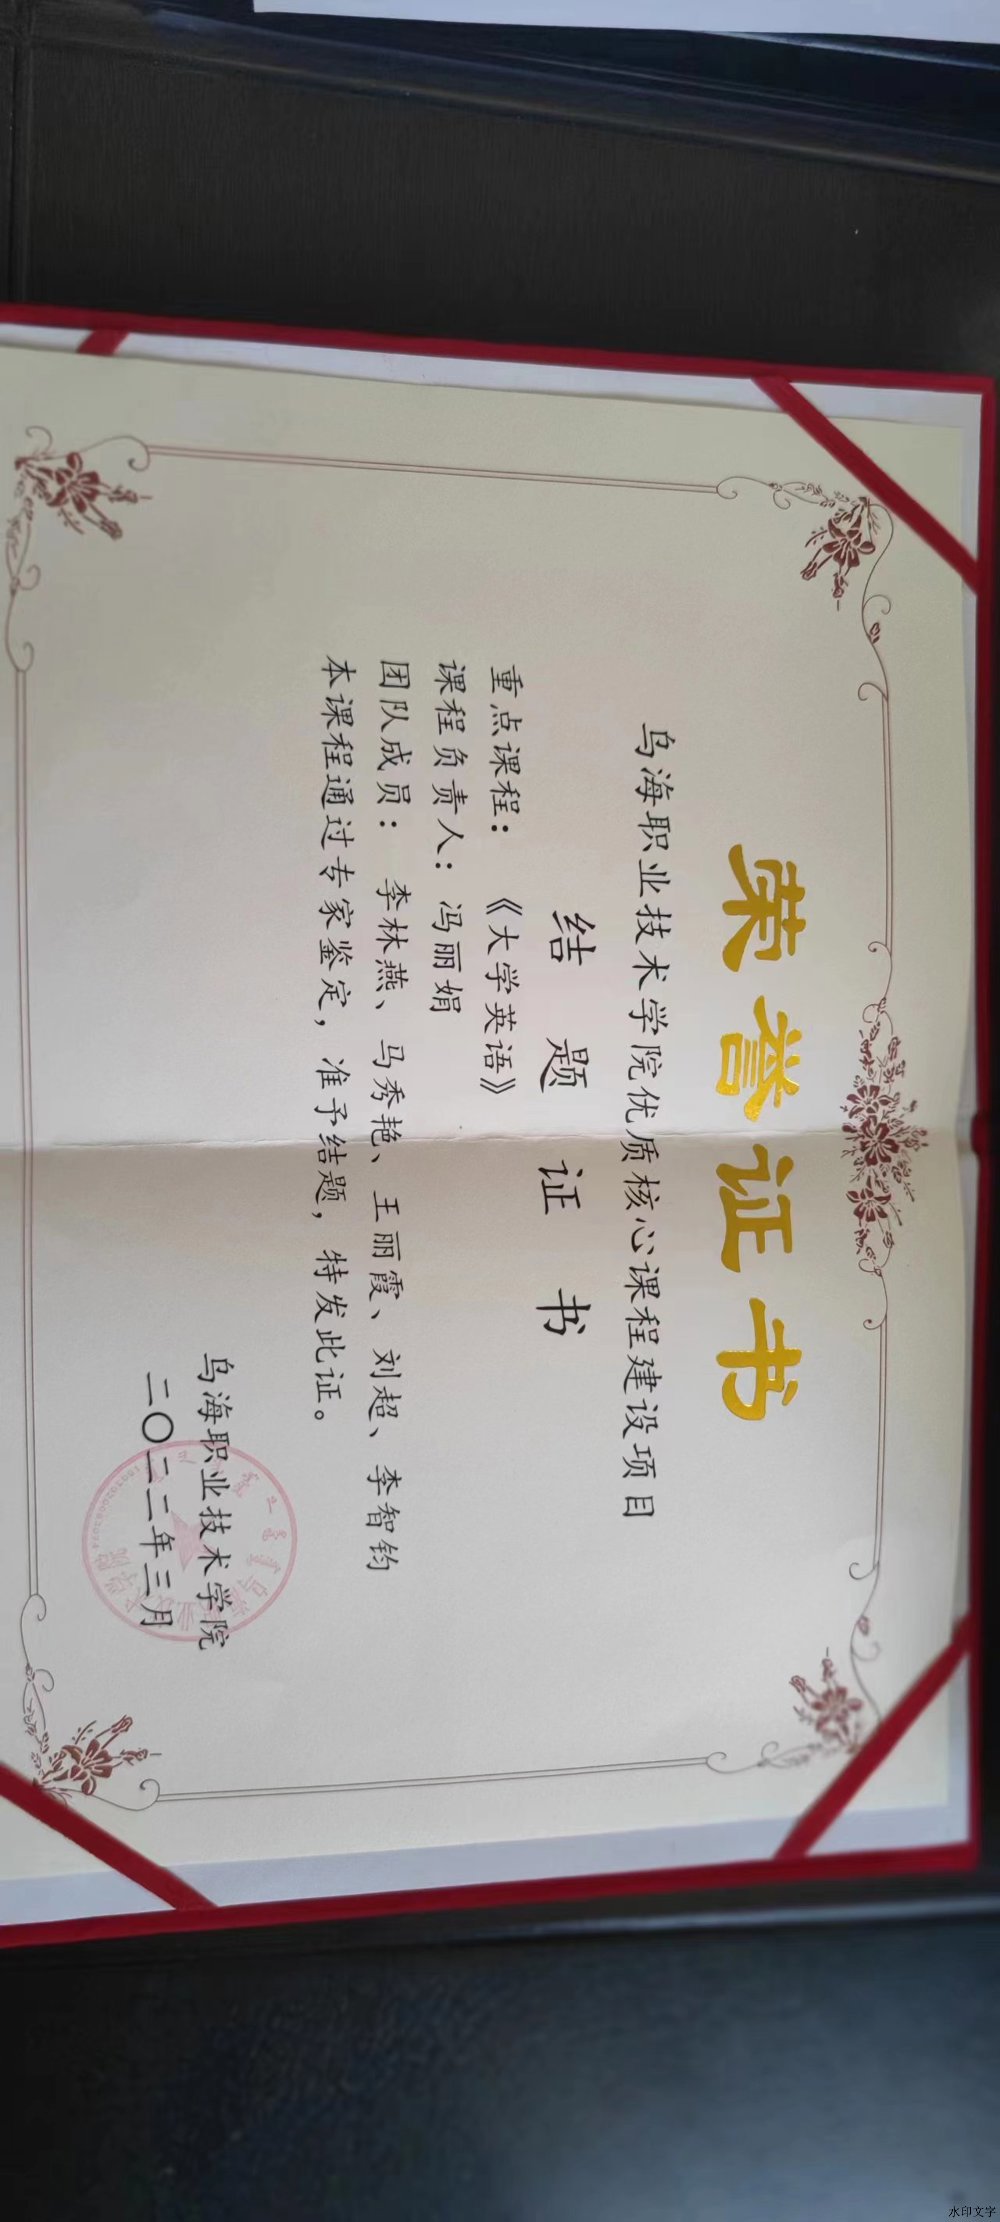 荣誉证书
乌海职业技术学院优质核心课程建设项目
结题证书
重点课程：《大学英语》
课程负责人：冯丽娟
团队成员：李林燕、马秀艳、王丽霞、刘超、李智钧
本课程通过专家鉴定，准予结题，特发此证。
乌海职业技术学院
二〇二二年三月
水印文字